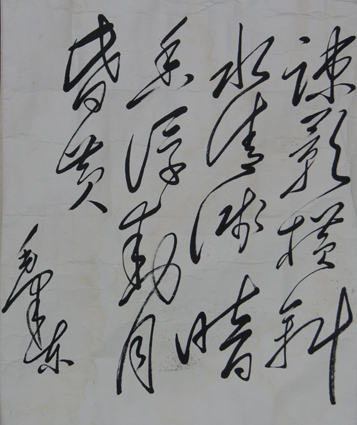 疎影横斜
水清浅暗
香浮動月
昏黄
毛泽东